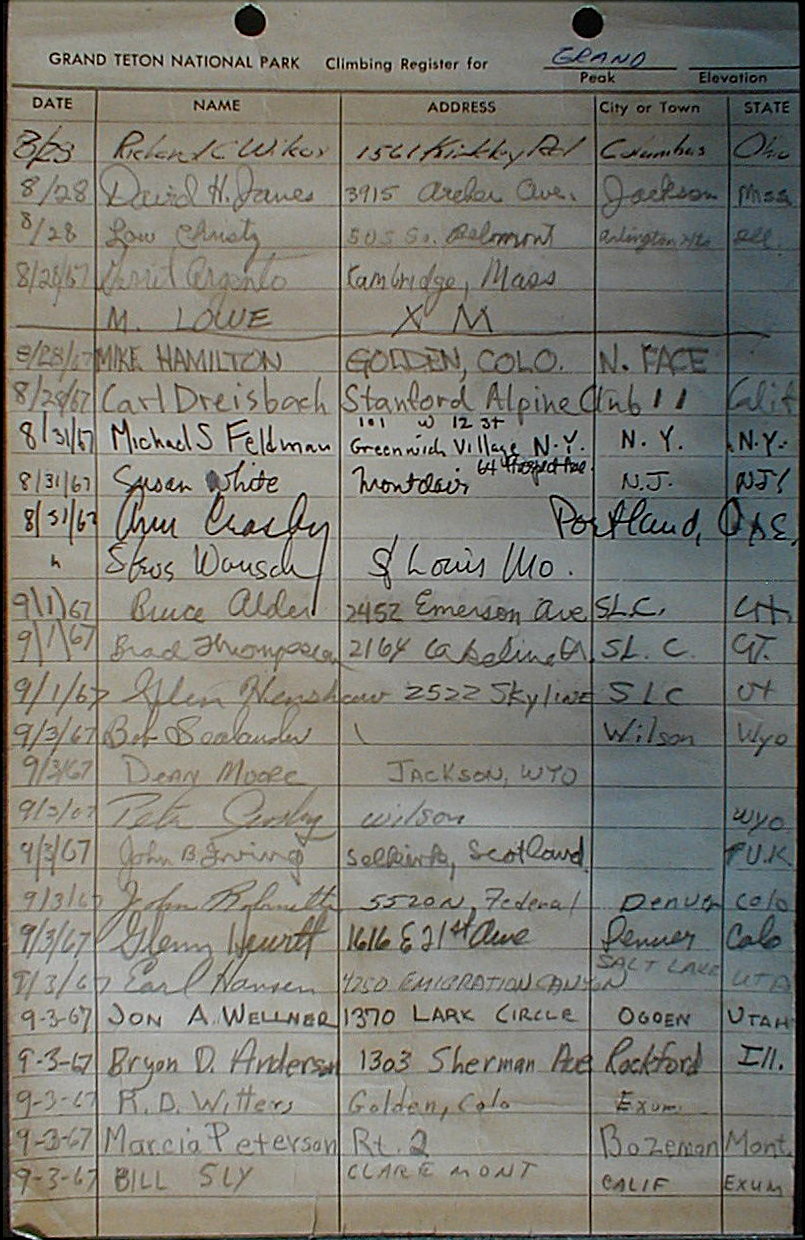 GRAND TETON NATIONAL PARK Climbing Register for GRAND
Peak Elevation
DATE NAME ADDRESS City or Town STATE
Richard C Wilcox 1561 Rd Columbus Ohio
8/28 David H. Janes 3915 Archer Ave. Jackson Miss
8/28 Lou Christy 505 So. Belmont Arlington Hts Ill.
8/28/67 Argento Cambridge, Mass
M. LOWE X M
8/28/67 MIKE HAMILTON GOLDEN, COLO. N. FACE
8/28/67 Carl Dreisbach Stanford Alpine Club 11 Calif
101 W 12 St
8/31/67 Michael S Feldman Greenwich Village N.Y. N.Y. N.Y.
64 Prospect Ave.
8/31/67 Susan White Montclair N.J. NJ
8/31/67 Ann Crosby Portland, ORE.
" Steve Wunsch St Louis Mo.
9/1/67 Bruce Alder 2452 Emerson Ave SLC. UT.
9/1/67 Brad Thompson 2164 SL. C. UT.
9/1/67 Glen Henshaw 2522 Skyline SLC Ut
9/3/67 Bob Wilson Wyo
9/3/67 DEAN MOORE JACKSON, WYO
9/3/67 Pete wilson wyo
9/3/67 John B. Irving Selkirk, Scotland U.K.
9/3/67 John 5520 N. Federal Denver Colo
9/3/67 Glenn Hewitt 1616 E 21st Ave Denver Colo
9/3/67 Earl Hansen 4250 EMIGRATION CANYON SALT LAKE UTA
9-3-67 JON A. WELLNER 1370 LARK CIRCLE OGDEN UTAH
9-3-67 Bryon D. Anderson 1303 Sherman Ave Rockford Ill.
9-3-67 R.D. Witters Golden, Colo Exum
9-3-67 Marcia Peterson Rt. 2 Bozeman Mont.
9-3-67 BILL SLY CLAREMONT CALIF EXUM